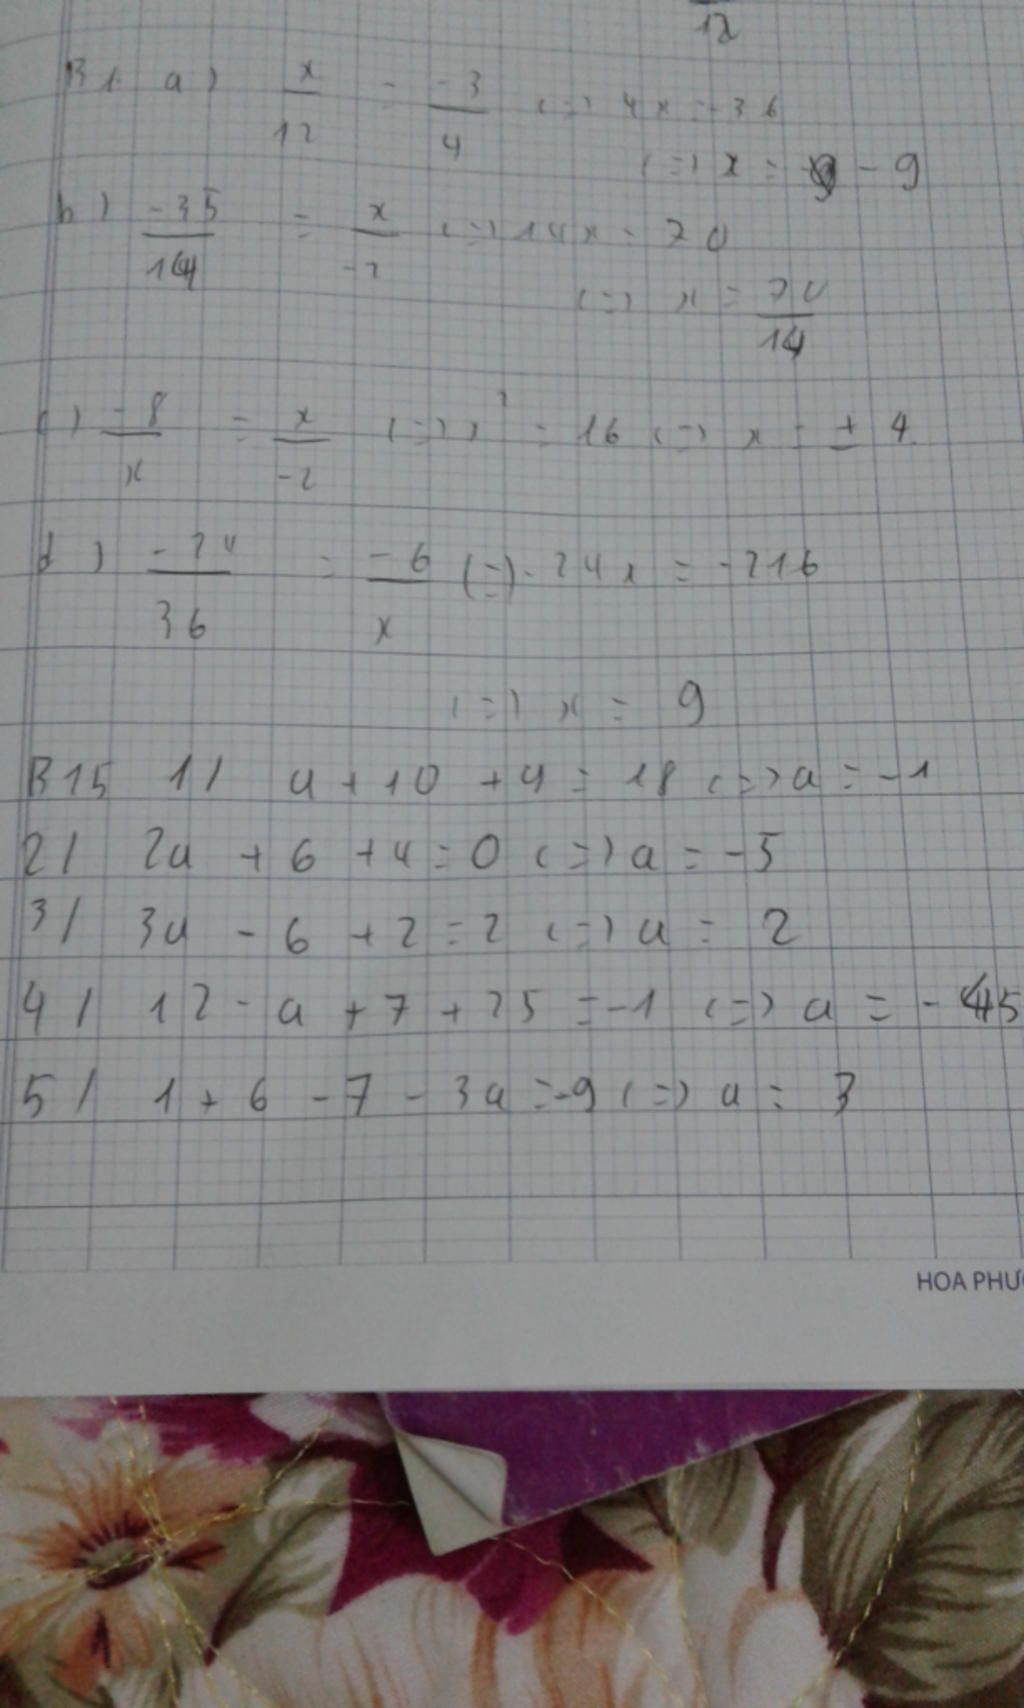 12
B1. a) x/12 = -3/4 (=) 4x = -36
(=) x = -9
b) -35/14 = x/-2 (=) 14x = 70
(=) x = 70/14
c) -8/x = x/-2 (=) x² = 16 (=) x = ± 4
d) -24/36 = -6/x (=) -24x = -216
(=) x = 9
B15 1/ a + 10 + 9 = 18 (=) a = -1
2/ 2a + 6 + 4 = 0 (=) a = -5
3/ 3a - 6 + 2 = 2 (=) a = 2
4/ 12 - a + 7 + 25 = -1 (=) a = - 45
5/ 1 + 6 - 7 - 3a = -9 (=) a = 3
HOA PHƯ